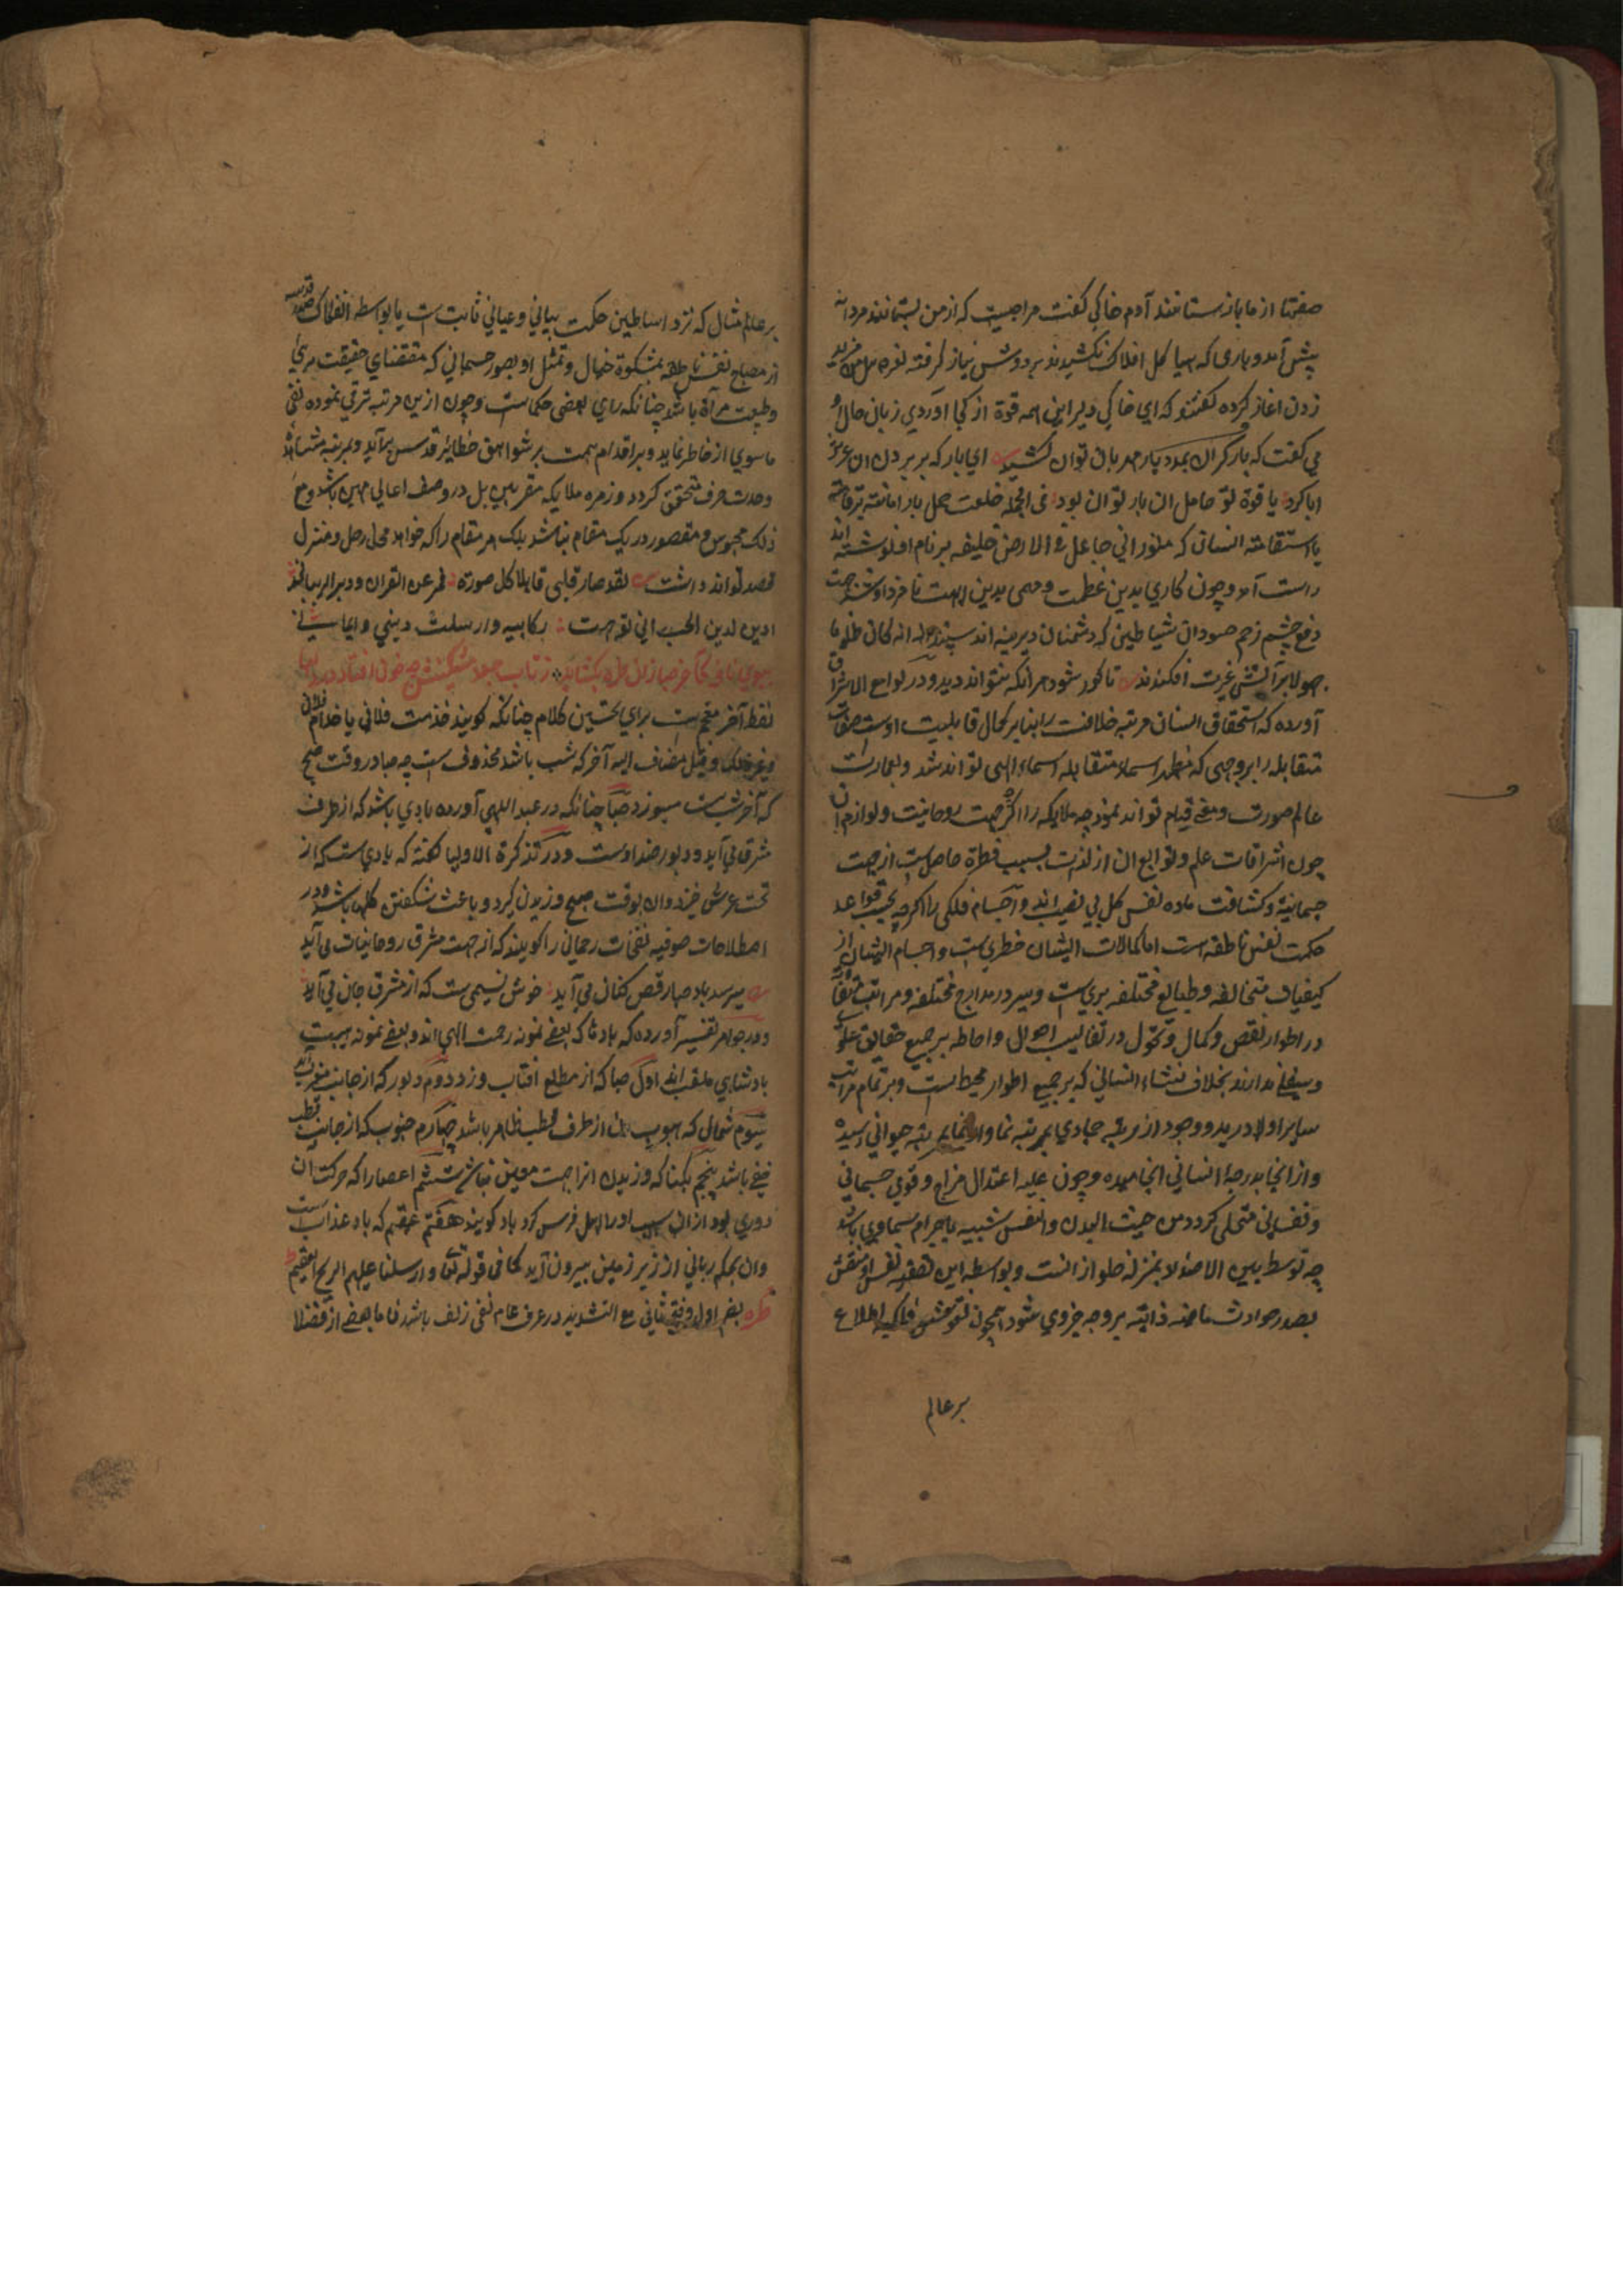 صفتها از ما باز ستانند آدم خاکی گفت مرا چیست که از من بستانند مردانه
پیش آمد و باری که هیاکل افلاک نکشیدند بر دوش نیاز گرفته نعره هل من مزید
زدن اغاز کرده گفتند که ای خاکی دلیر این همه قوة از کجا آوردی زبان حال او
می گفت که بار گران بمدد یار مهربان توان کشید ای بار که بر بردن ان عرش
ابا کرد با قوة تو حامل ان بار توان بود فی الجمله خلعت حمل بار امانت بر قامت
با استقامت انسان که منشور انی جاعل فی الارض خلیفه بر نام او نوشته اند
راست آمد و چون کاری بدین عظمت و مهمی بدین ابهت نامزد او شد جهت
دفع چشم زخم حسودان شیاطین که دشمنان دیرینه اند سپند انه کان ظلوما
جهولا بر آتش غیرت افکندند تا کور شود هر آنکه نتواند دید و در لوامع الاشراق
آورده که استحقاق انسان مرتبه خلافت را بنابر کمال قابلیت اوست صفات
متقابله را بر وجهی که مظهر اسماء متقابله اسماء الهی تواند شد و بعمارت
عالم صورت و معنی قیام تواند نمود چه ملایکه را اگرچه جهت روحانیت و لوازم ان
چون اشراقات علم و توابع ان از لذت بسبب فطرة حاصل است از جهت
جسمانیة و کثافت ماده نفس کل بی نصیب اند و اجسام فلکی را اگرچه بحسب قواعد
حکمت نفس ناطقه است اما کمالات ایشان فطری است و اجسام ایشان از
کیفیات متخالفه و طبایع مختلفه بری است و سیر در مدارج مختلفه و مراتب
در اطوار نقص و کمال و تحول در تقالیب احوال و احاطه بر جمیع حقایق علوی
و سفلی ندارند بخلاف نشاء انسانی که بر جمیع اطوار محیط است و بر تمام مراتب
سایر اولا در بدو وجود از مرتبه جمادی بمرتبه نما و از نما بمرتبه حیوانی رسیده
و از انجا بدرجه انسانی انجامیده و چون بحلیه اعتدال مزاج و قوی جسمانی
و نفسانی متحلی گردد من حیث البدن و النفس شبیه باجرام سماوی باشد
چه توسط بین الاضداد بمنزله خلو از انست و بواسطه این نفس او منتقش
بصور حوادث ماضیه و اتیه بر وجه جزوی شود همچون نفوس فلکیه اطلاع
بر عالم
بر عالم مثال که نزد اساطین حکمت بیانی و عیانی ثابت است یا بواسطه انعکاس صور قدسیه
از مصباح نفس ناطقه بمشکوة خیال و تمثل او بصور جسمانی که مقتضای حقیقت مرئی
و طبیعت مرآة باشد چنانکه رای بعضی حکماست و چون ازین مرتبه ترقی نموده نفی
ماسوی از خاطر نماید و بر اقدام همت بر شواهق حظائر قدس برآید و بمرتبه مشاهده
وحدت صرف متحقق گردد و زمره ملایکه مقربین بل در وصف اعالی مهین باشد و مع
ذلک محبوس و مقصور در یک مقام نباشد بلک هر مقام را که خواهد محل رحل و منزل
قصد تواند داشت لقد صار قلبی قابلا کل صورة فمرعی لغزلان و دیر لرهبان
ادین بدین الحب انی توجهت رکابیه و ارسلت دینی و ایمانی
ببوی نافه کآخر صبا زان طره بکشاید ز تاب جعد مشکینش چه خون افتاد در دلها
لفظ آخر مقحم است برای تحسین کلام چنانکه گویند خدمت فلانی یا خدام فلان
و غیر ذلک و قیل مضاف الیه آخر که شب باشد محذوف است چه صبا در وقت صبح
که آخر شب است میوزد صبا چنانکه در عبد اللهی آورده بادی باشد که از طرف
مشرق می آید و دبور ضد اوست و در تذکرة الاولیا گفته که بادی است که از
تحت عرش خیزد و ان بوقت صبح وزیدن گیرد و باعث شکفتن گلها باشد و در
اصطلاحات صوفیه نفحات رحمانی را گویند که از جهت مشرق روحانیات می آید
میرسد باد صبا رقص کنان می آید خوش نسیمی ست که از مشرق جان می آید
و در جواهر تفسیر آورده که بادها که بعضی نمونه رحمت الهی اند و بعضی نمونه هیبت
پادشاهی ملقب اند اول صبا که از مطلع افتاب وزد دوم دبور که از جانب مغرب آید
سیوم شمال که هبوب ان از طرف قطب ظاهر باشد چهارم جنوب که از جانب قطب
خفی باشد پنجم نکبا که وزیدن انرا جهت معین نباشد ششم اعصار که حرکت ان
دوری بود از ان سبب او را اهل فرس گرد باد گویند هفتم عقیم که باد عذاب است
و ان بحکم ربانی از زیر زمین بیرون آید کما فی قوله تعالی و ارسلنا علیهم الریح العقیم
طره بضم اول و فتح ثانی مع التشدید در عرف عام نفی زلف باشد فاما بعضی از فضلا